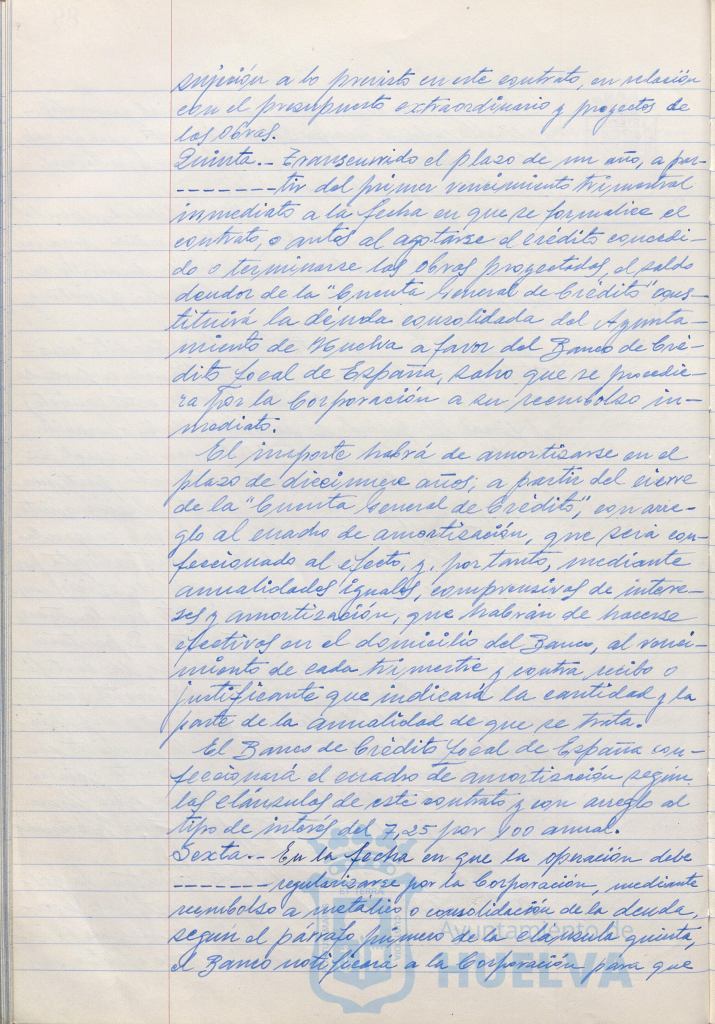 sujeción a lo previsto en este contrato, en relación
con el presupuesto extraordinario y proyectos de
las Obras.
Quinta.- Transcurrido el plazo de un año, a par-
-------tir del primer vencimiento trimestral
inmediato a la fecha en que se formalice el
contrato, o antes al agotarse el crédito concedi-
do o terminarse las Obras proyectadas, el saldo
deudor de la "Cuenta General de Crédito" cons-
tituirá la deuda consolidada del Ayunta-
miento de Huelva a favor del Banco de Cré-
dito Local de España, salvo que se procedie-
ra por la Corporación a su reembolso in-
mediato.
El importe habrá de amortizarse en el
plazo de diecinueve años, a partir del cierre
de la "Cuenta General de Crédito", con arre-
glo al cuadro de amortización, que será con-
feccionado al efecto, y, por tanto, mediante
anualidades iguales, comprensivas de intere-
ses y amortización, que habrán de hacerse
efectivas en el domicilio del Banco, al venci-
miento de cada trimestre y contra recibo o
justificante que indicará la cantidad y la
parte de la anualidad de que se trata.
El Banco de Crédito Local de España con-
feccionará el cuadro de amortización según
las cláusulas de este contrato y con arreglo al
tipo de interés del 7,25 por 100 anual.
Sexta.- En la fecha en que la operación debe
-------regularizarse por la Corporación, mediante
reembolso a metálico o consolidación de la deuda,
según el párrafo primero de la cláusula quinta,
el Banco notificará a la Corporación para que
Ayuntamiento de
HUELVA